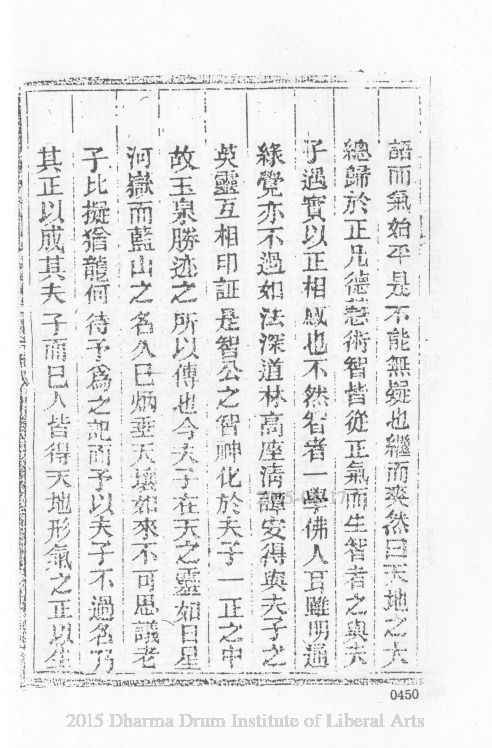 語而氣始平是不能無疑也繼而爽然曰天地之大
總歸於正凡德慧術智皆從正氣而生智者之與夫
子遇實以正相感也不然智者一學佛人且雖明通
緣覺亦不過如法深道林高座清譚安得與夫子之
英靈互相印証是智公之智神化於夫子一正之中
故玉泉勝迹之所以傳也今夫子在天之靈如日星
河嶽而藍山之名久已炳垂天壤如來不可思議老
子比擬猶龍何待予為之記而予以夫子不過名乃
其正以成其夫子而已人皆得天地形氣之正以生
0450
2015 Dharma Drum Institute of Liberal Arts